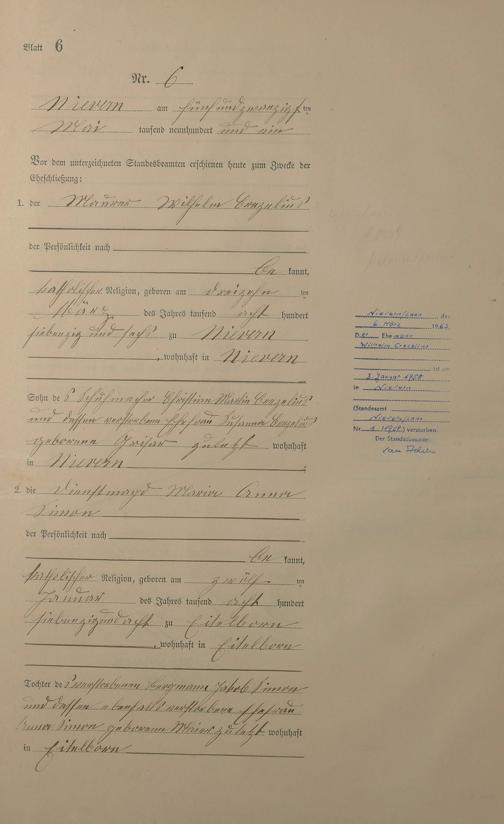 Blatt 6
Nr. 6
Nievern am fünfundzwanzigsten
Mai tausend neunhundert und ein
Vor dem unterzeichneten Standesbeamten erschienen heute zum Zwecke der
Eheschließung:
1. der Maurer Wilhelm Crezelius
der Persönlichkeit nach
be kannt,
katholischer Religion, geboren am dreizehn ten
März des Jahres tausend acht hundert
siebenzig und sechs zu Nievern
, wohnhaft in Nievern
Sohn des Schuhmacher Christian Martin Crezelius
und dessen verstorbene Ehefrau Susanna Crezelius
geborene Grisar zuletzt wohnhaft
in Nievern
2. die Dienstmagd Maria Anna
Simon
der Persönlichkeit nach
be kannt,
katholischer Religion, geboren am zwölf ten
Januar des Jahres tausend acht hundert
siebenzigundacht zu Eitelborn
, wohnhaft in Eitelborn
Tochter des verstorbenen Bergmann Jakob Simon
und dessen ebenfalls verstorbene Ehefrau
Anna Simon geborene Maier zuletzt wohnhaft
in Eitelborn
den
6. März 1962
Der Ehemann
Wilhelm Crezelius
ist am
2. Januar 1958
in Nievern
(Standesamt
Nr. 1/1958) verstorben.
Der Standesbeamte: